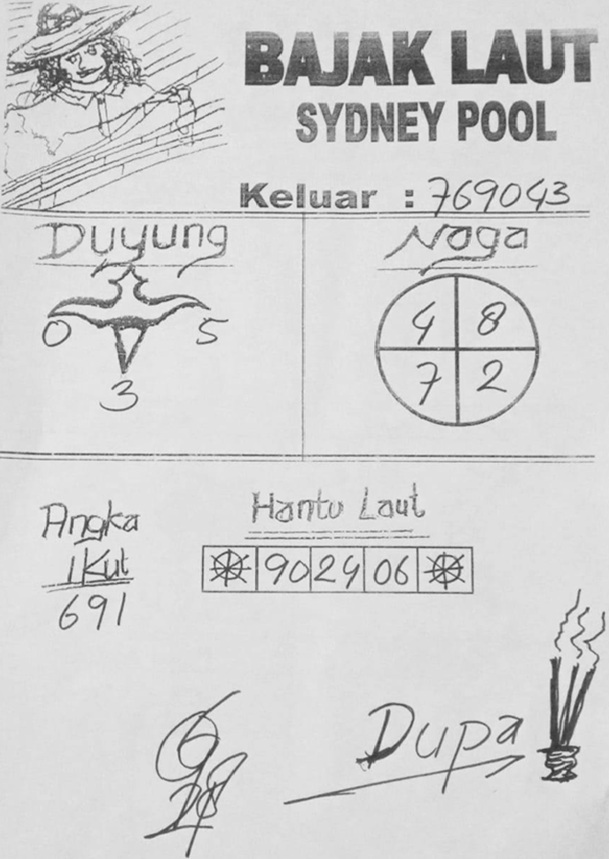 BAJAK LAUT
SYDNEY POOL
Keluar : 769043
Duyung
0 5
3
Naga
4 8
7 2
Angka
Ikut
691
Hantu Laut
90 24 06
Dupa